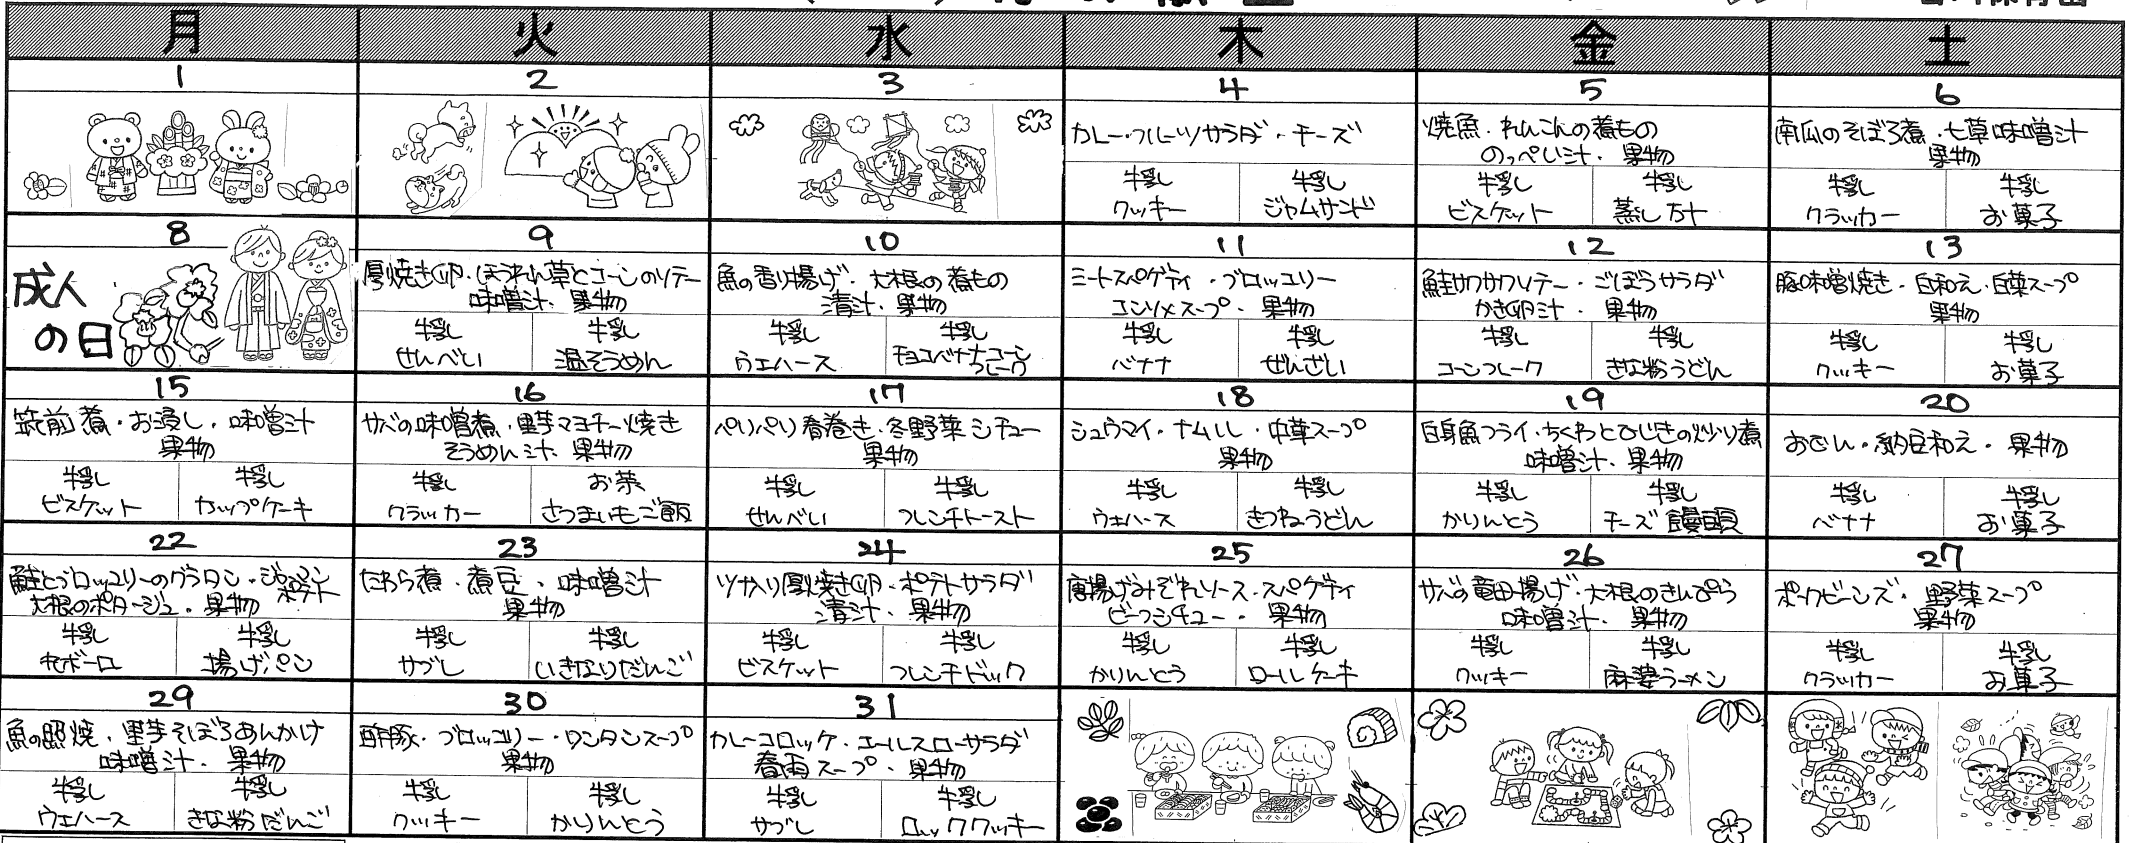 月 火 水 木 金 土
1
2
3
4
カレー・フルーツサラダ・チーズ
牛乳 牛乳
クッキー ジャムサンド
5
焼魚・れんこんの煮もの
のっぺい汁・果物
牛乳 牛乳
ビスケット 蒸しカキ
6
南瓜のそぼろ煮・七草味噌汁
果物
牛乳 牛乳
クラッカー お菓子
8
成人
の日
9
厚焼き卵・ほうれん草とコーンのソテー
味噌汁・果物
牛乳 牛乳
せんべい 温そうめん
10
魚の香り揚げ・大根の煮もの
清汁・果物
牛乳 牛乳
ウエハース チョコバナナコーン
フレーク
11
ミートスパゲティ・ブロッコリー
コンソメスープ・果物
牛乳 牛乳
バナナ ぜんざい
12
鮭サワサワソテー・ごぼうサラダ
かき卵汁・果物
牛乳 牛乳
コーンフレーク きな粉うどん
13
豚味噌焼き・白和え・白菜スープ
果物
牛乳 牛乳
クッキー お菓子
15
筑前煮・お浸し・味噌汁
果物
牛乳 牛乳
ビスケット カップケーキ
16
サバの味噌煮・里芋マヨチー焼き
そうめん汁・果物
牛乳 お茶
クラッカー さつまいもご飯
17
パリパリ春巻き・冬野菜シチュー
果物
牛乳 牛乳
せんべい フレンチトースト
18
シュウマイ・ナムル・中華スープ
果物
牛乳 牛乳
ウエハース きつねうどん
19
白身魚フライ・ちくわとひじきの炒り煮
味噌汁・果物
牛乳 牛乳
かりんとう チーズ饅頭
20
おでん・納豆和え・果物
牛乳 牛乳
バナナ お菓子
22
鮭とブロッコリーのグラタン・ジャーマンポテト
大根のポタージュ・果物
牛乳 牛乳
丸ボーロ 揚げパン
23
たわら煮・煮豆・味噌汁
果物
牛乳 牛乳
サブレ いきなりだんご
24
ツナ入り厚焼き卵・ポテトサラダ
清汁・果物
牛乳 牛乳
ビスケット フレンチドック
25
唐揚げみぞれソース・スパゲティ
ビーフシチュー・果物
牛乳 牛乳
かりんとう ロールケーキ
26
サバの竜田揚げ・大根のきんぴら
味噌汁・果物
牛乳 牛乳
クッキー 麻婆ラーメン
27
ポークビーンズ・野菜スープ
果物
牛乳 牛乳
クラッカー お菓子
29
魚の照焼・里芋そぼろあんかけ
味噌汁・果物
牛乳 牛乳
ウエハース きな粉だんご
30
酢豚・ブロッコリー・ワンタンスープ
果物
牛乳 牛乳
クッキー かりんとう
31
カレーコロッケ・コールスローサラダ
春雨スープ・果物
牛乳 牛乳
サブレ ロッククッキー